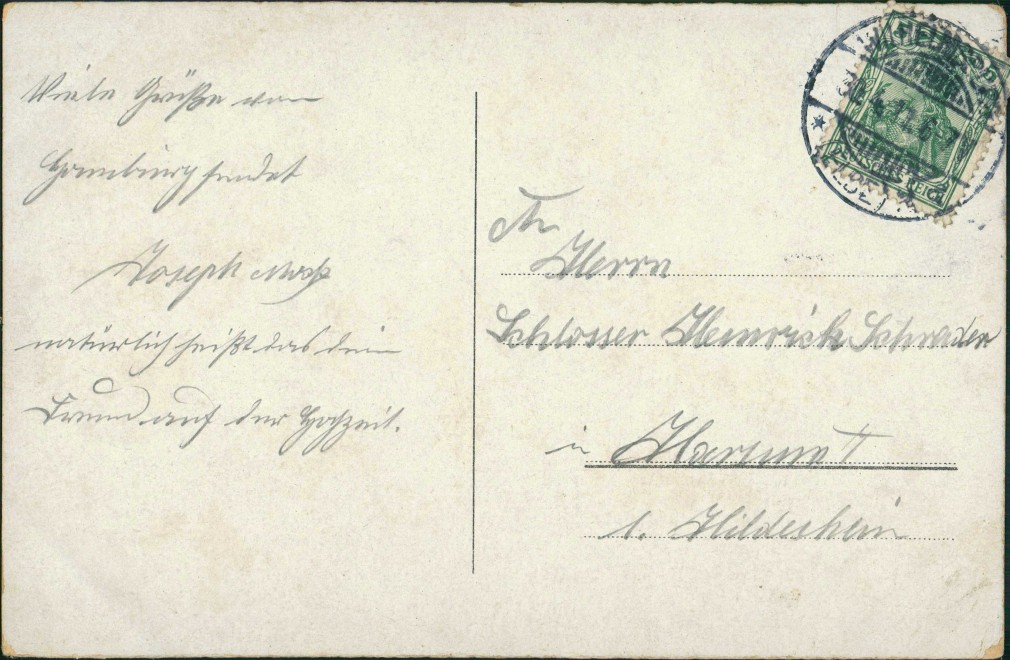 Viele Grüße von
Hamburg sendet
Joseph
natürlich heißt das dein
Freund auf der Hochzeit.
An
Herrn
Schlosser Heinrich Schrader
in Harsum
b. Hildesheim
DEUTSCHES REICH